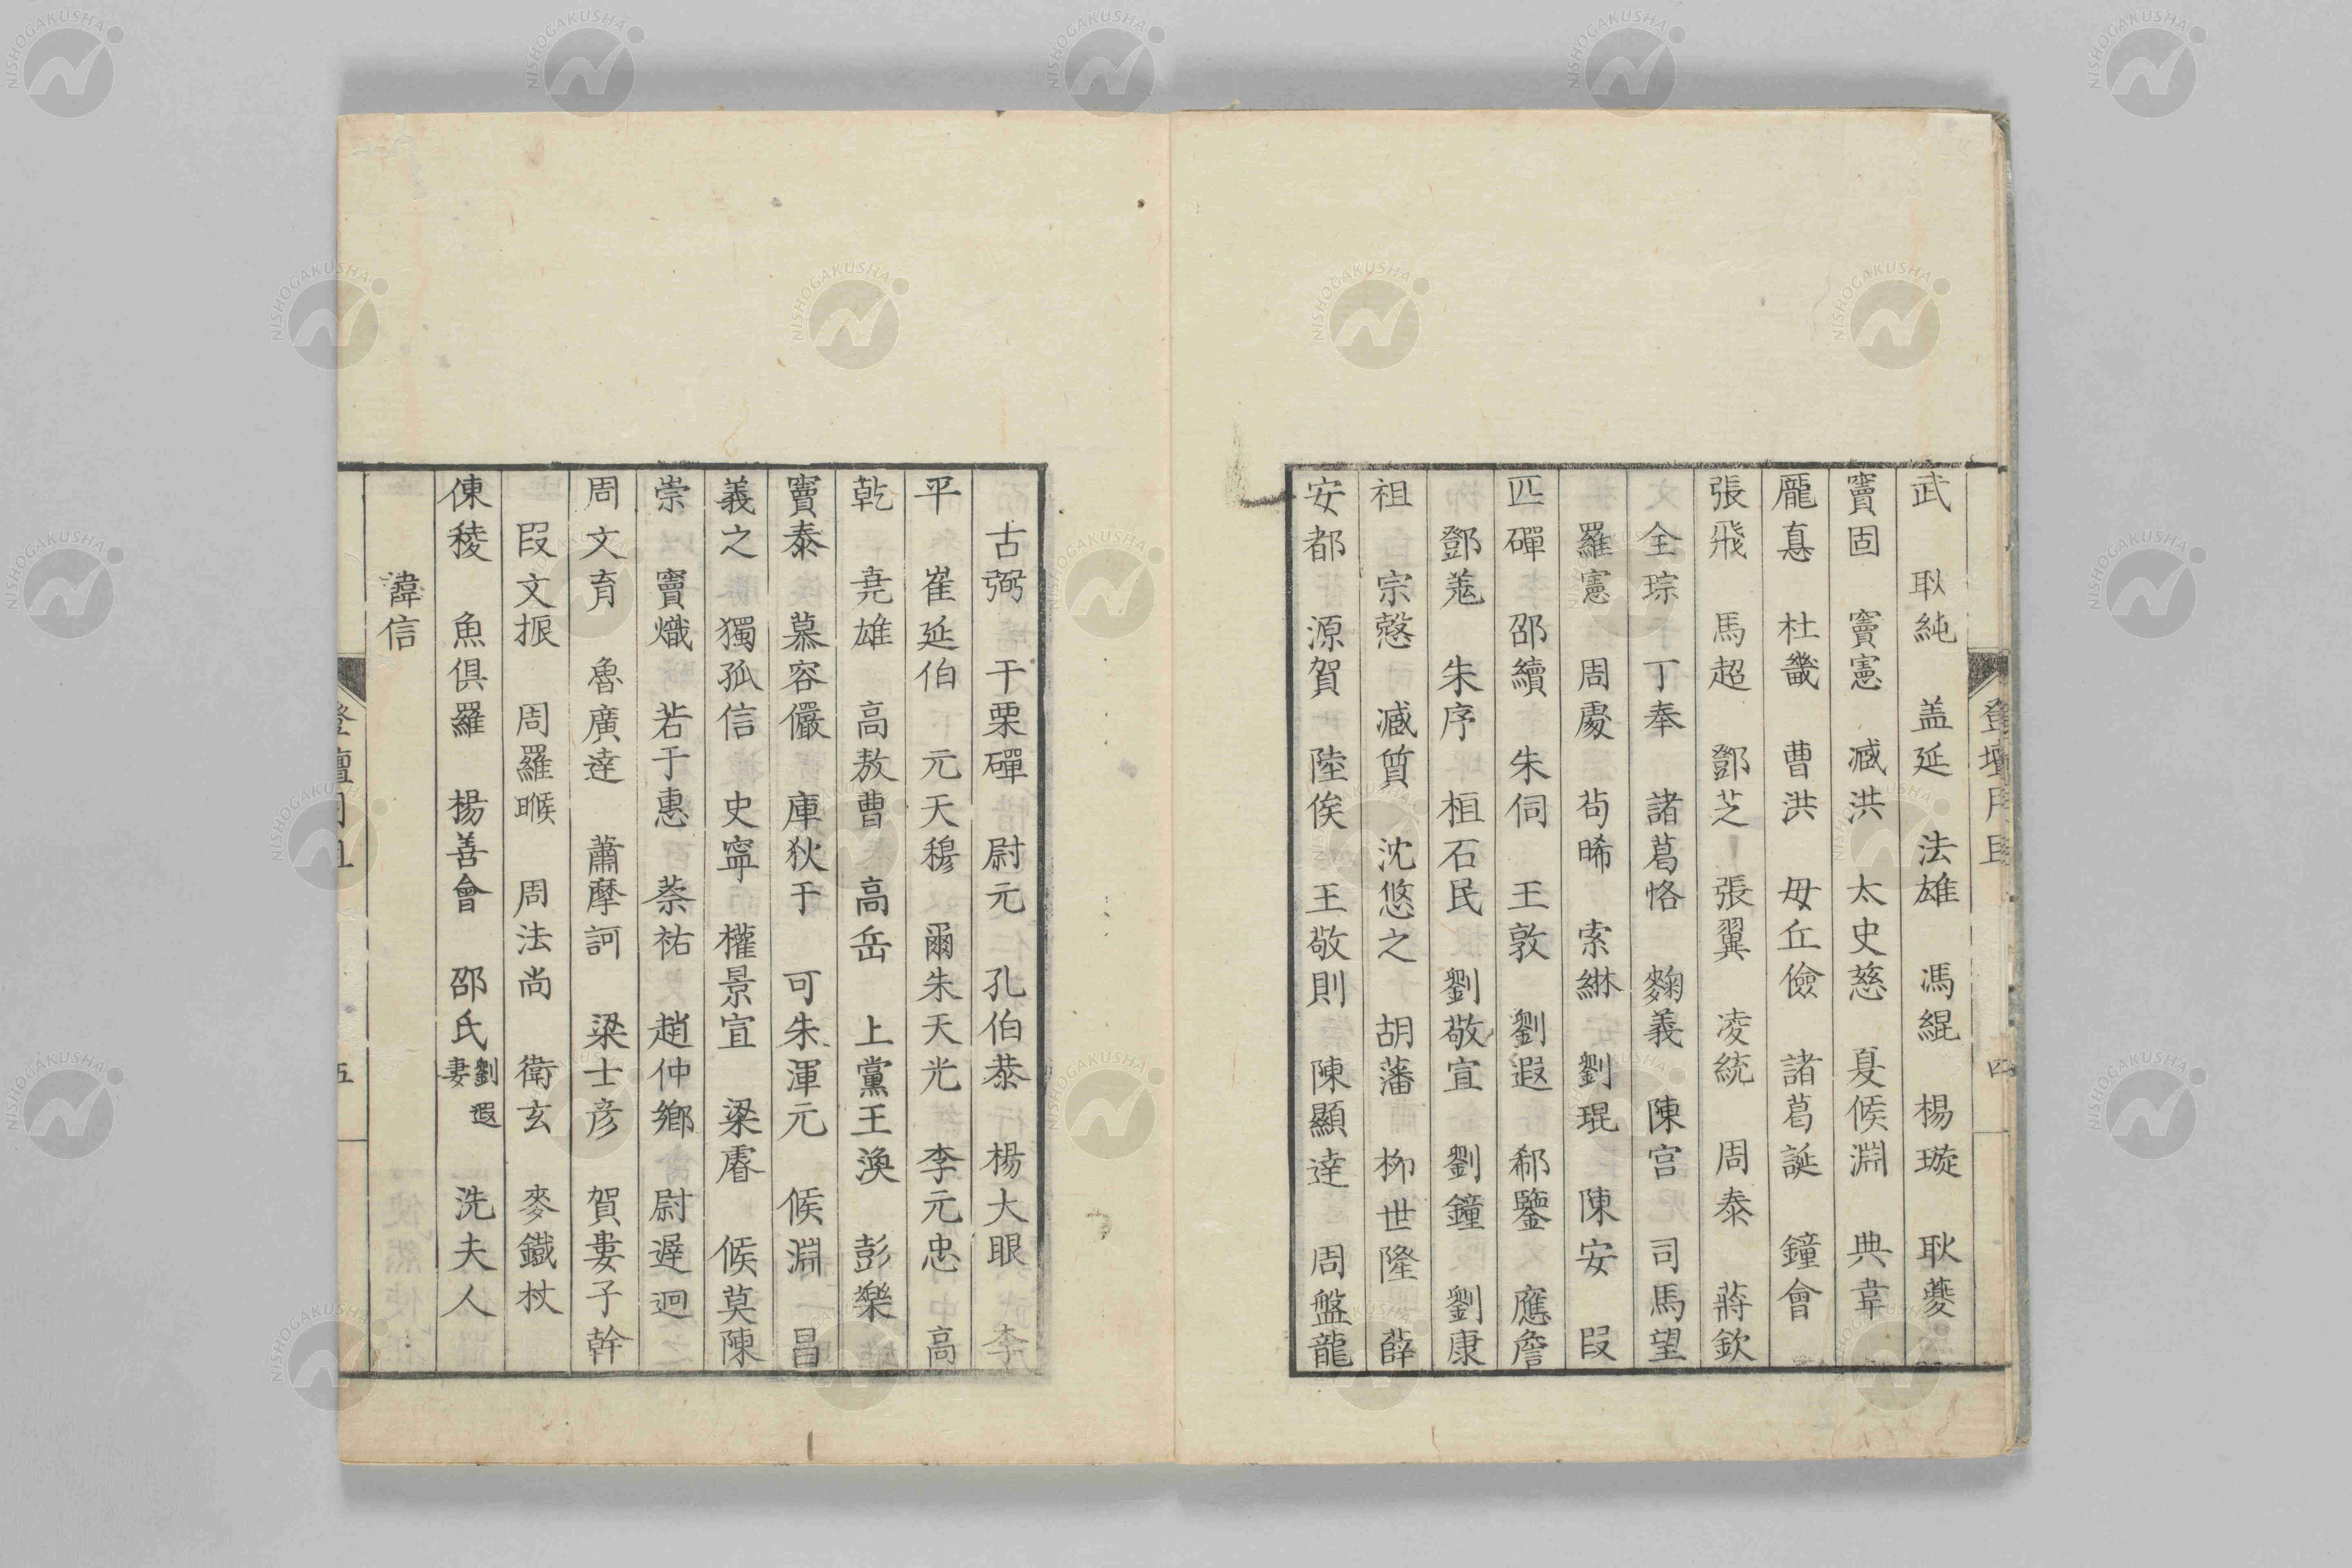 登壇用目 四
武 耿純 盖延 法雄 馮緄 楊璇 耿夔
竇固 竇憲 臧洪 太史慈 夏候淵 典韋
龐惪 杜畿 曹洪 毋丘儉 諸葛誕 鐘會
張飛 馬超 鄧芝 張翼 凌統 周泰 蔣欽
全琮 丁奉 諸葛恪 麴義 陳宫 司馬望
羅憲 周處 苟晞 索綝 劉琨 陳安 段
匹磾 邵續 朱伺 王敦 劉遐 郗鑒 應詹
鄧羗 朱序 桓石民 劉敬宣 劉鐘 劉康
祖 宗慤 臧質 沈悠之 胡藩 柳世隆 薛
安都 源賀 陸俟 王敬則 陳顯達 周盤龍
古弼 于栗磾 尉元 孔伯恭 楊大眼 李
平 崔延伯 元天穆 爾朱天光 李元忠 高
乾 尭雄 高敖曹 高岳 上黨王渙 彭樂
竇泰 慕容儼 庫狄于 可朱渾元 候淵 昌
義之 獨孤信 史寜 權景宣 梁睿 候莫陳
崇 竇熾 若于惠 蔡祐 趙仲鄉 尉遲迥
周文育 魯廣達 蕭摩訶 梁士彦 賀婁子幹
段文振 周羅睺 周法尚 衛玄 麥鐵杖
倲稜 魚俱羅 楊善會 邵氏劉遐妻 洗夫人
諱信
五
NISHOGAKUSHA